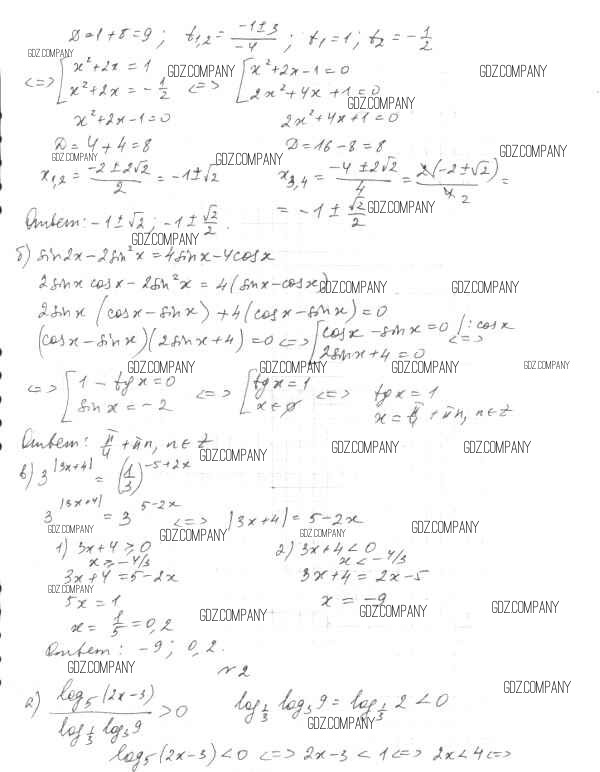 D=1+8=9; t₁,₂ = (-1±3)/(-4); t₁=1; t₂=-1/2
GDZ.COMPANY
<=> [x²+2x=1 GDZ.COMPANY [x²+2x-1=0 GDZ.COMPANY
[x²+2x=-1/2 <=> [2x²+4x+1=0
GDZ.COMPANY
x²+2x-1=0 2x²+4x+1=0
D=4+4=8 D=16-8=8 GDZ.COMPANY
GDZ.COMPANY GDZ.COMPANY
x₁,₂ = (-2±2√2)/2 = -1±√2 x₃,₄ = (-4±2√2)/4 = 2(-2±√2)/4 2 =
= -1±√2/2 GDZ.COMPANY
Ответ: -1±√2; -1±√2/2.
GDZ.COMPANY
б) sin2x-2sin²x=4sinx-4cosx
2sinx cosx-2sin²x=4(sinx-cosx) GDZ.COMPANY GDZ.COMPANY
2sinx(cosx-sinx)+4(cosx-sinx)=0
(cosx-sinx)(2sinx+4)=0 <=> [cosx-sinx=0 |:cosx
[2sinx+4=0 <=>
GDZ.COMPANY GDZ.COMPANY GDZ.COMPANY GDZ.COMPANY
<=> [1-tgx=0 <=> [tgx=1 <=> tgx=1
[sinx=-2 [x∈∅ x=π/4+πn, n∈Z
Ответ: π/4+πn, n∈Z
GDZ.COMPANY GDZ.COMPANY GDZ.COMPANY
в) 3^|3x+4| = (1/3)^(-5+2x)
3^|3x+4| = 3^(5-2x) <=> |3x+4|=5-2x
GDZ.COMPANY GDZ.COMPANY GDZ.COMPANY GDZ.COMPANY
1) 3x+4≥0 2) 3x+4<0
x≥-4/3 x<-4/3
3x+4=5-2x 3x+4=2x-5
GDZ.COMPANY
5x=1 x=-9
GDZ.COMPANY GDZ.COMPANY GDZ.COMPANY
x=1/5=0,2
Ответ: -9; 0,2.
GDZ.COMPANY №2
GDZ.COMPANY
а) log₅(2x-3)/(log_{1/3} log₃9) > 0 log_{1/3} log₃9 = log_{1/3} 2 < 0
GDZ.COMPANY
log₅(2x-3)<0 <=> 2x-3<1 <=> 2x<4 <=>